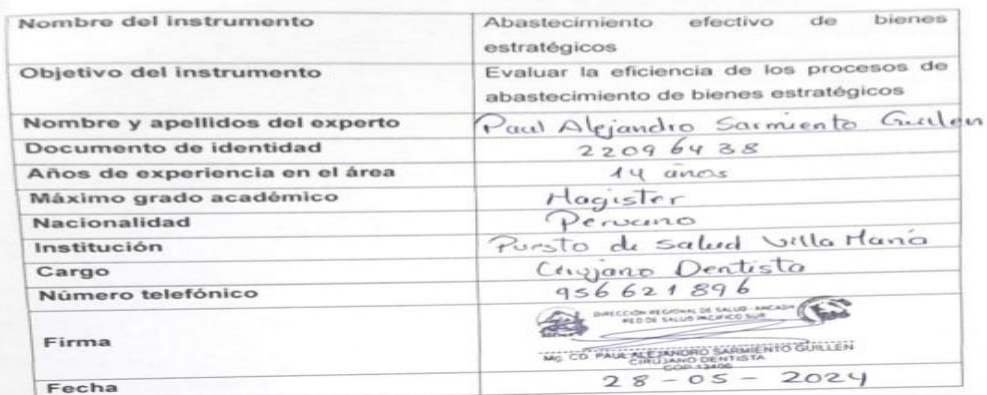 Nombre del instrumento Abastecimiento efectivo de bienes
estratégicos
Objetivo del instrumento Evaluar la eficiencia de los procesos de
abastecimiento de bienes estratégicos
Nombre y apellidos del experto Paul Alejandro Sarmiento Guillen
Documento de identidad 22096438
Años de experiencia en el área 14 años
Máximo grado académico Magister
Nacionalidad Peruano
Institución Puesto de Salud Villa María
Cargo Cirujano Dentista
Número telefónico 956621896
DIRECCIÓN REGIONAL DE SALUD - ANCASH
RED DE SALUD PACIFICO SUR
Firma
MG. CD. PAUL ALEJANDRO SARMIENTO GUILLEN
CIRUJANO DENTISTA
COP
Fecha 28-05-2024